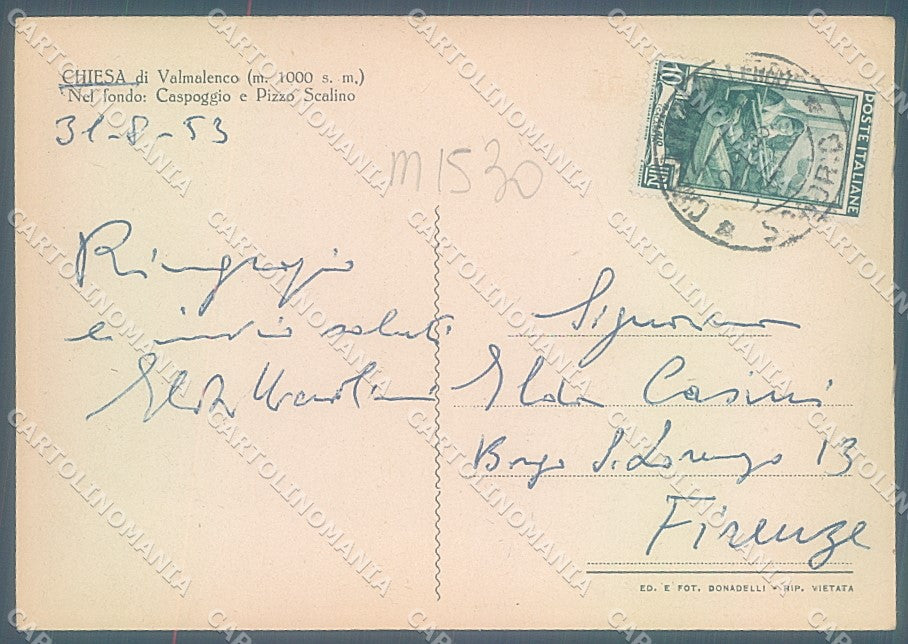 CHIESA di Valmalenco (m. 1000 s. m.)
Nel fondo: Caspoggio e Pizzo Scalino
31-8-53
m1530
Ringrazio
e invio saluti
Elda
10
LIRE
POSTE ITALIANE
Signorina
Elda Casini
Borgo S. Lorenzo 13
Firenze
ED. E FOT. DONADELLI - RIP. VIETATA
CARTOLINOMANIA